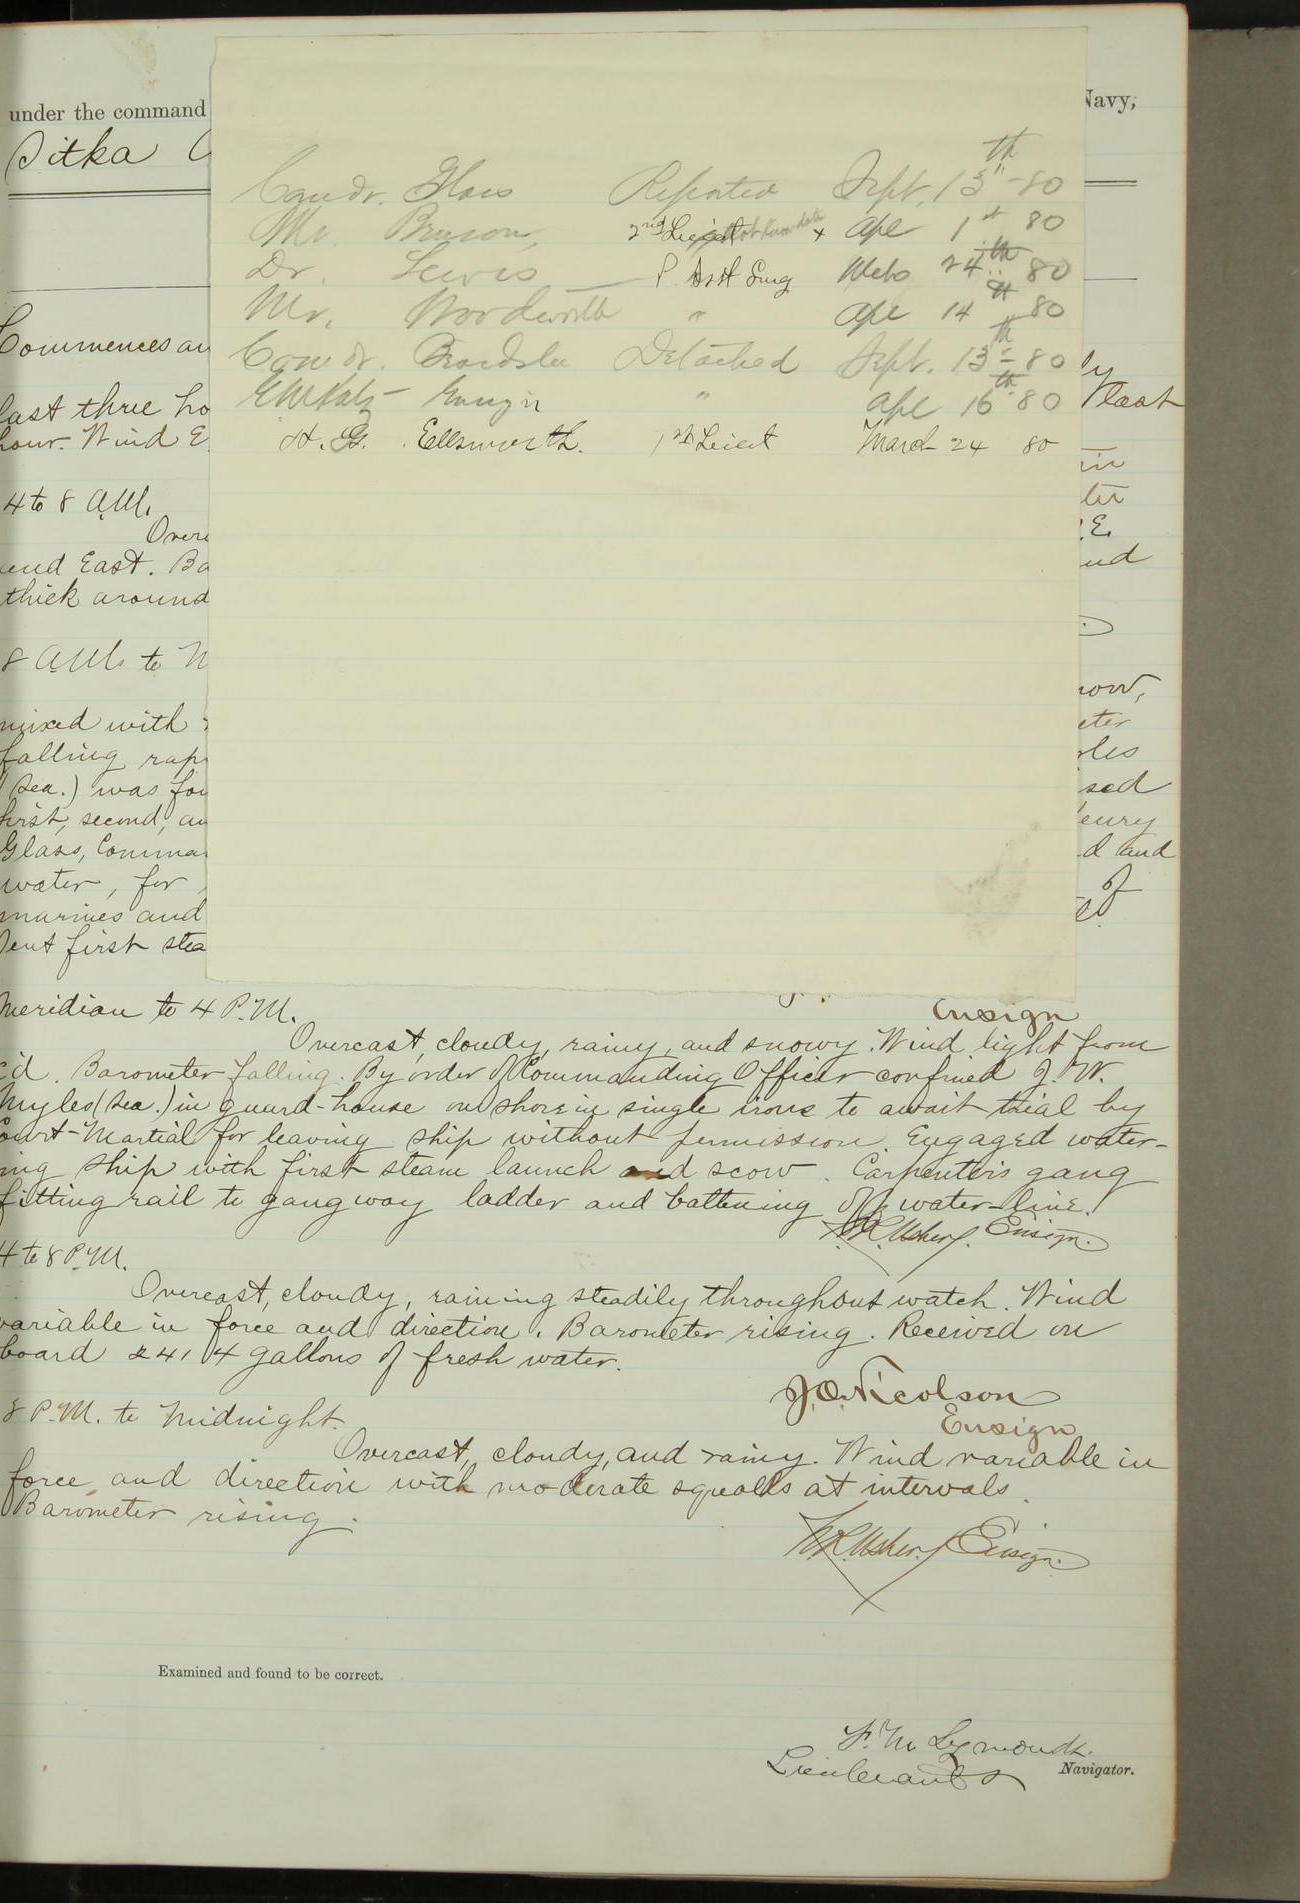 under the command
Navy,
Sitka
Comdr. Glass Reported Sept. 13th - 80
Mr. 2nd Lieut x Apl 1st 80
Dr. Lewis P. Asst Surg 24th 80
Mr. Woodworth " Apl 14th 80
Comdr. Beardslee Detached Sept. 13th - 80
Ensign " Apl 16th 80
H. G. Ellsworth. 1st Lieut March 24 80
Commences an
last three ho
last
hour. Wind E.
4 to 8 A.M.
Over
E.
and East. Ba
thick around
8 A.M. to
mixed with
falling rap
(Sea.) was fou
first, second, an
Glass, Comman
d and
water, for
of
marines and
Sent first stea
Ensign
Meridian to 4 P.M.
Overcast, cloudy, rainy, and snowy. Wind light from
Barometer falling. By order of Commanding Officer confined J. W.
Myles (Sea.) in guard-house on shore in single irons to await trial by
Court-Martial for leaving ship without permission. Engaged water-
ing ship with first steam launch and scow. Carpenter's gang
fitting rail to gangway ladder and battening off water-line.
Usher, Ensign.
4 to 8 P.M.
Overcast, cloudy, raining steadily throughout watch. Wind
variable in force and direction. Barometer rising. Received on
board 2414 gallons of fresh water.
J.O. Nicolson
Ensign
8 P.M. to Midnight.
Overcast, cloudy, and rainy. Wind variable in
force and direction with moderate squalls at intervals.
Barometer rising.
Usher, Ensign.
Examined and found to be correct.
F. M. Symonds.
Lieutenant
Navigator.